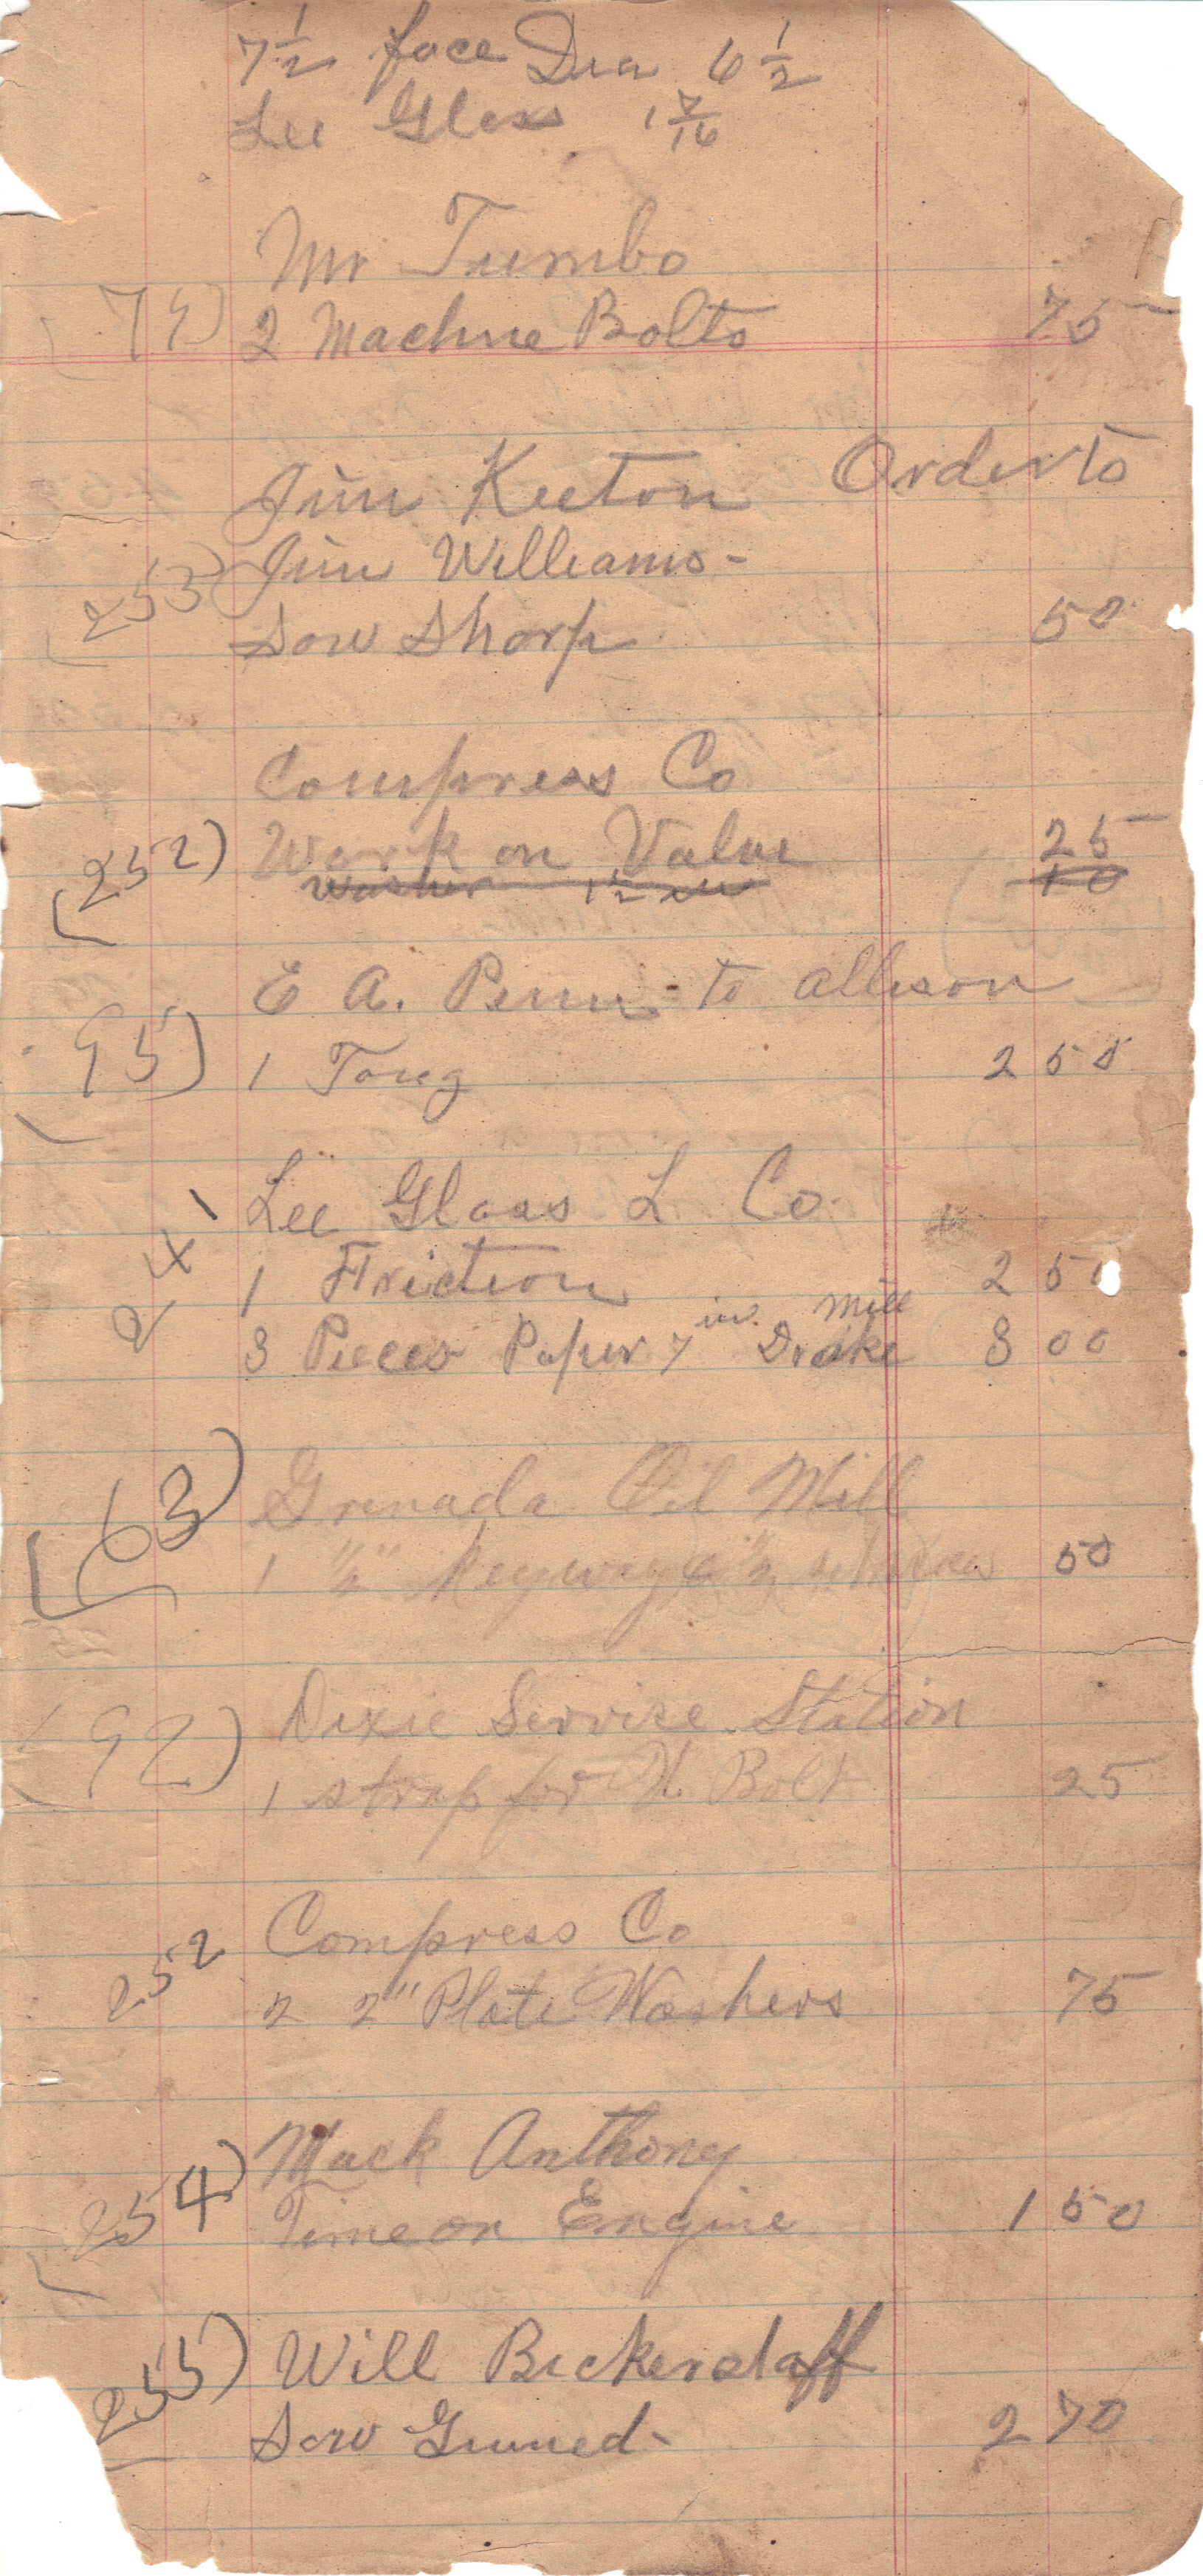 7 1/2 face Dia 6 1/2
Lee Glass 1 7/16
Mr Tumbo
74) 2 Machine Bolts 75
Jim Keeton Order to
253) Jim Williams -
Saw Sharp 50
Compress Co
(252) Work on Valve 25
Washer 1 1/2 10
E A. Penn to Allison
(95) 1 Tong 2 50
Lee Glass L Co.
241 1 Friction 2 50
in. Mill
3 Pieces Paper 7 Drake 3 00
(63) Grenada Oil Mill
1 1/2" Keyway & 1/2 50
(92) Dixie Servise Station
1 strap for U. Bolt 25
252 Compress Co
2 2" Plate Washers 75
Mack Anthony
(254) Time on Engine 1 50
(255) Will Bickerstaff
Saw Gumed - 2 70